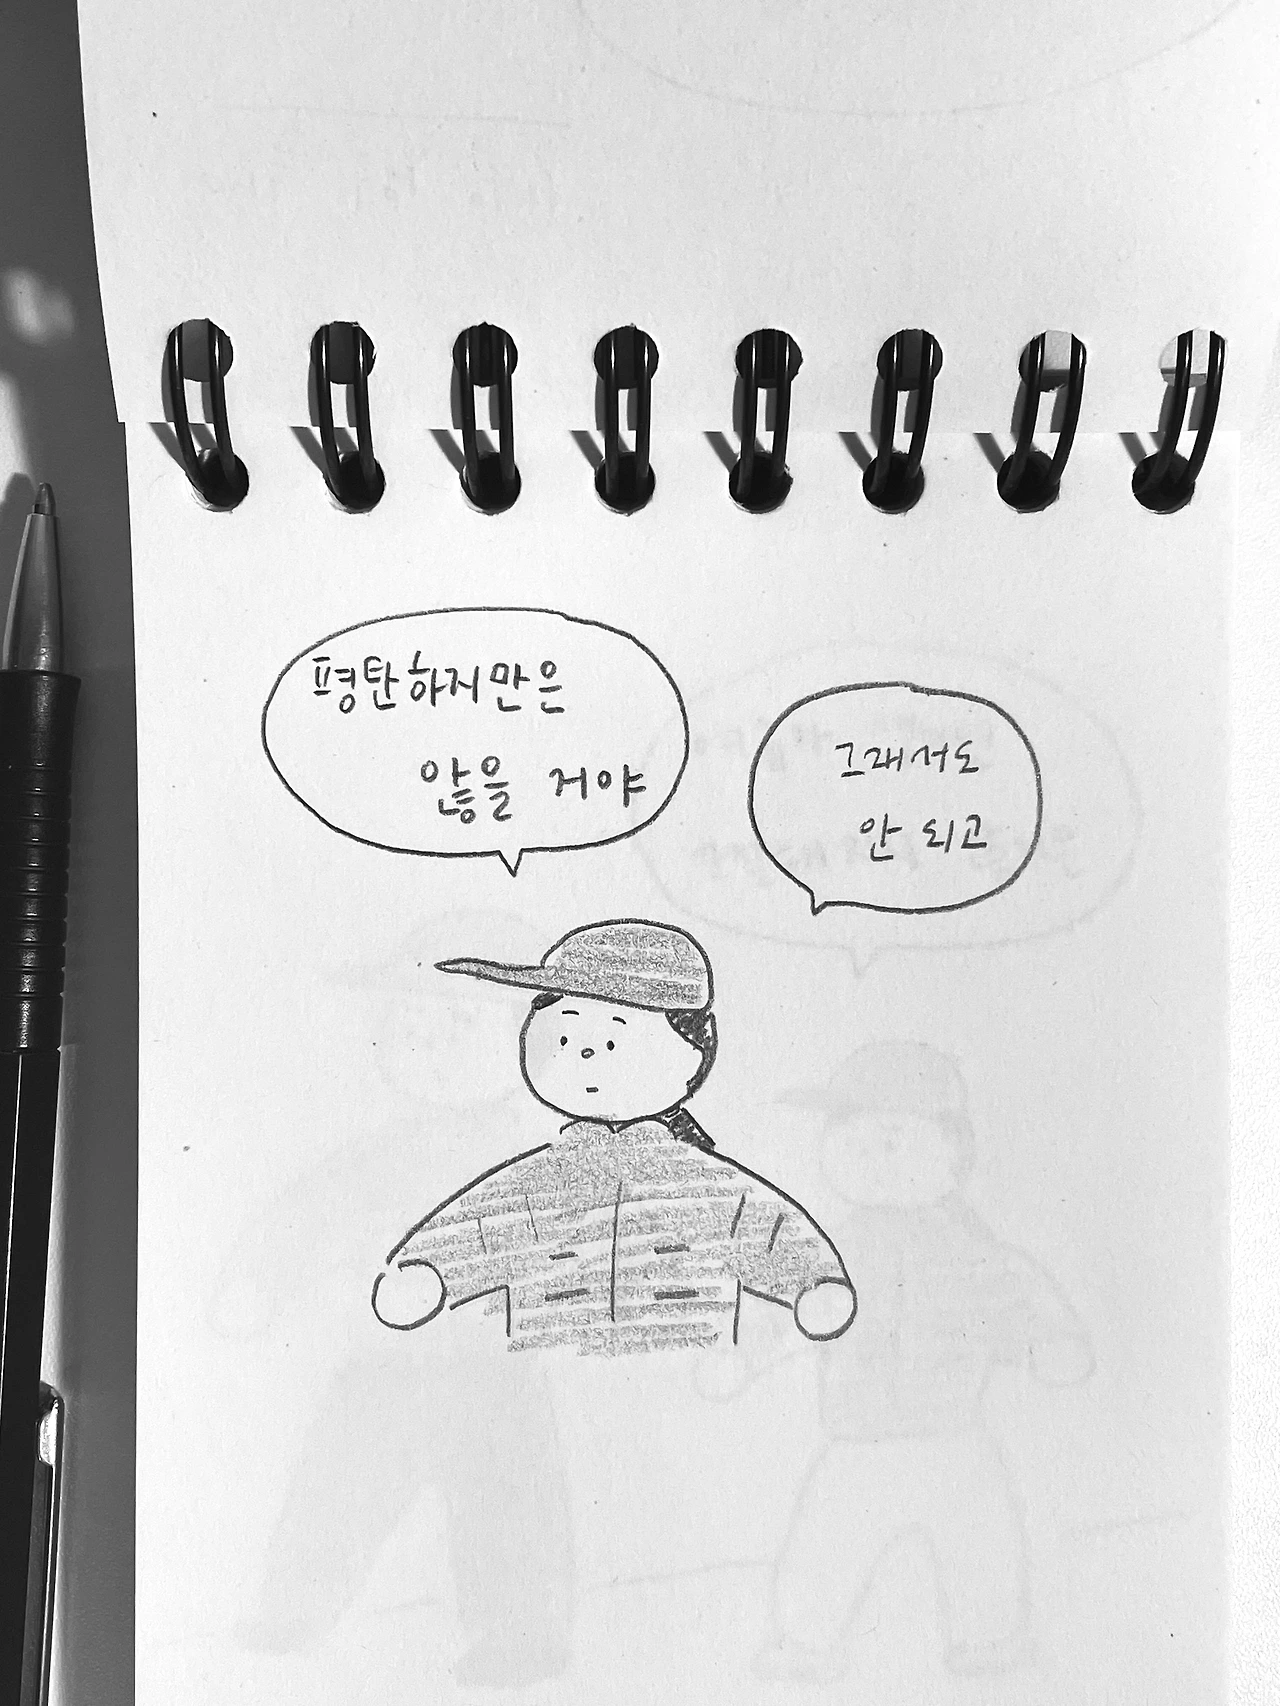 평탄하지만은
않을 거야
그래서도
안 되고